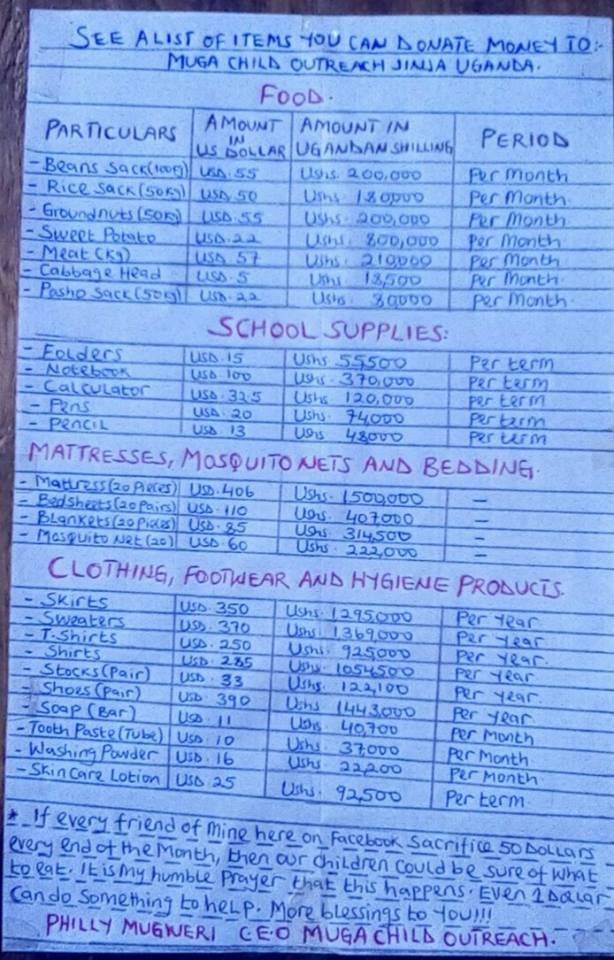 SEE A LIST OF ITEMS YOU CAN DONATE MONEY TO:-
MUGA CHILD OUTREACH JINJA UGANDA.
FOOD.
PARTICULARS AMOUNT IN US DOLLAR AMOUNT IN UGANDAN SHILLING PERIOD
- Beans Sack(100Kg) USD.55 Ushs. 200,000 Per Month
- Rice Sack(50Kg) USD.50 Ushs. 180,000 Per Month.
- Groundnuts(50Kg) USD.55 Ushs. 200,000 Per Month
- Sweet Potato USD.22 Ushs. 800,000 Per Month
- Meat (Kg) USD.57 Ushs. 210,000 Per Month
- Cabbage Head USD.5 Ushs. 18,500 Per Month.
- Posho Sack(50Kg) USD.22 Ushs. 80,000 Per Month.
SCHOOL SUPPLIES:
- Folders USD.15 Ushs. 55,500 Per term
- Notebook USD.100 Ushs. 370,000 Per term
- Calculator USD.32.5 Ushs. 120,000 Per term
- Pens USD.20 Ushs. 74,000 Per term
- Pencil USD.13 Ushs 48,000 Per term
MATTRESSES, MOSQUITO NETS AND BEDDING.
- Mattress(20 Pieces) USD.406 Ushs. 1,500,000 -
- Bedsheets(20 Pairs) USD.110 Ushs. 407,000 -
- Blankets(20 Pieces) USD.85 Ushs. 314,500 -
- Mosquito Net(20) USD.60 Ushs. 222,000 -
CLOTHING, FOOTWEAR AND HYGIENE PRODUCTS.
- Skirts USD.350 Ushs. 1,295,000 Per Year
- Sweaters USD.370 Ushs. 1,369,000 Per Year.
- T-Shirts USD.250 Ushs. 925,000 Per Year.
- Shirts USD.285 Ushs. 1,054,500 Per Year
- Stocks(Pair) USD.33 Ushs. 122,100 Per Year.
- Shoes (Pair) USD.390 Ushs. 1,443,000 Per Year
- Soap (Bar) USD.11 Ushs. 40,700 Per Month
- Tooth Paste(Tube) USD.10 Ushs. 37,000 Per Month
- Washing Powder USD.16 Ushs. 22,200 Per Month.
- Skin Care Lotion USD.25 Ushs. 92,500 Per term.
* If every friend of mine here on Facebook Sacrifice 50 Dollars
every end of the Month, then our children could be sure of what
to eat. It is my humble Prayer that this happens. Even 1 Dollar
Can do Something to help. More blessings to You!!!
PHILLY MUGWERI C.E.O MUGA CHILD OUTREACH.